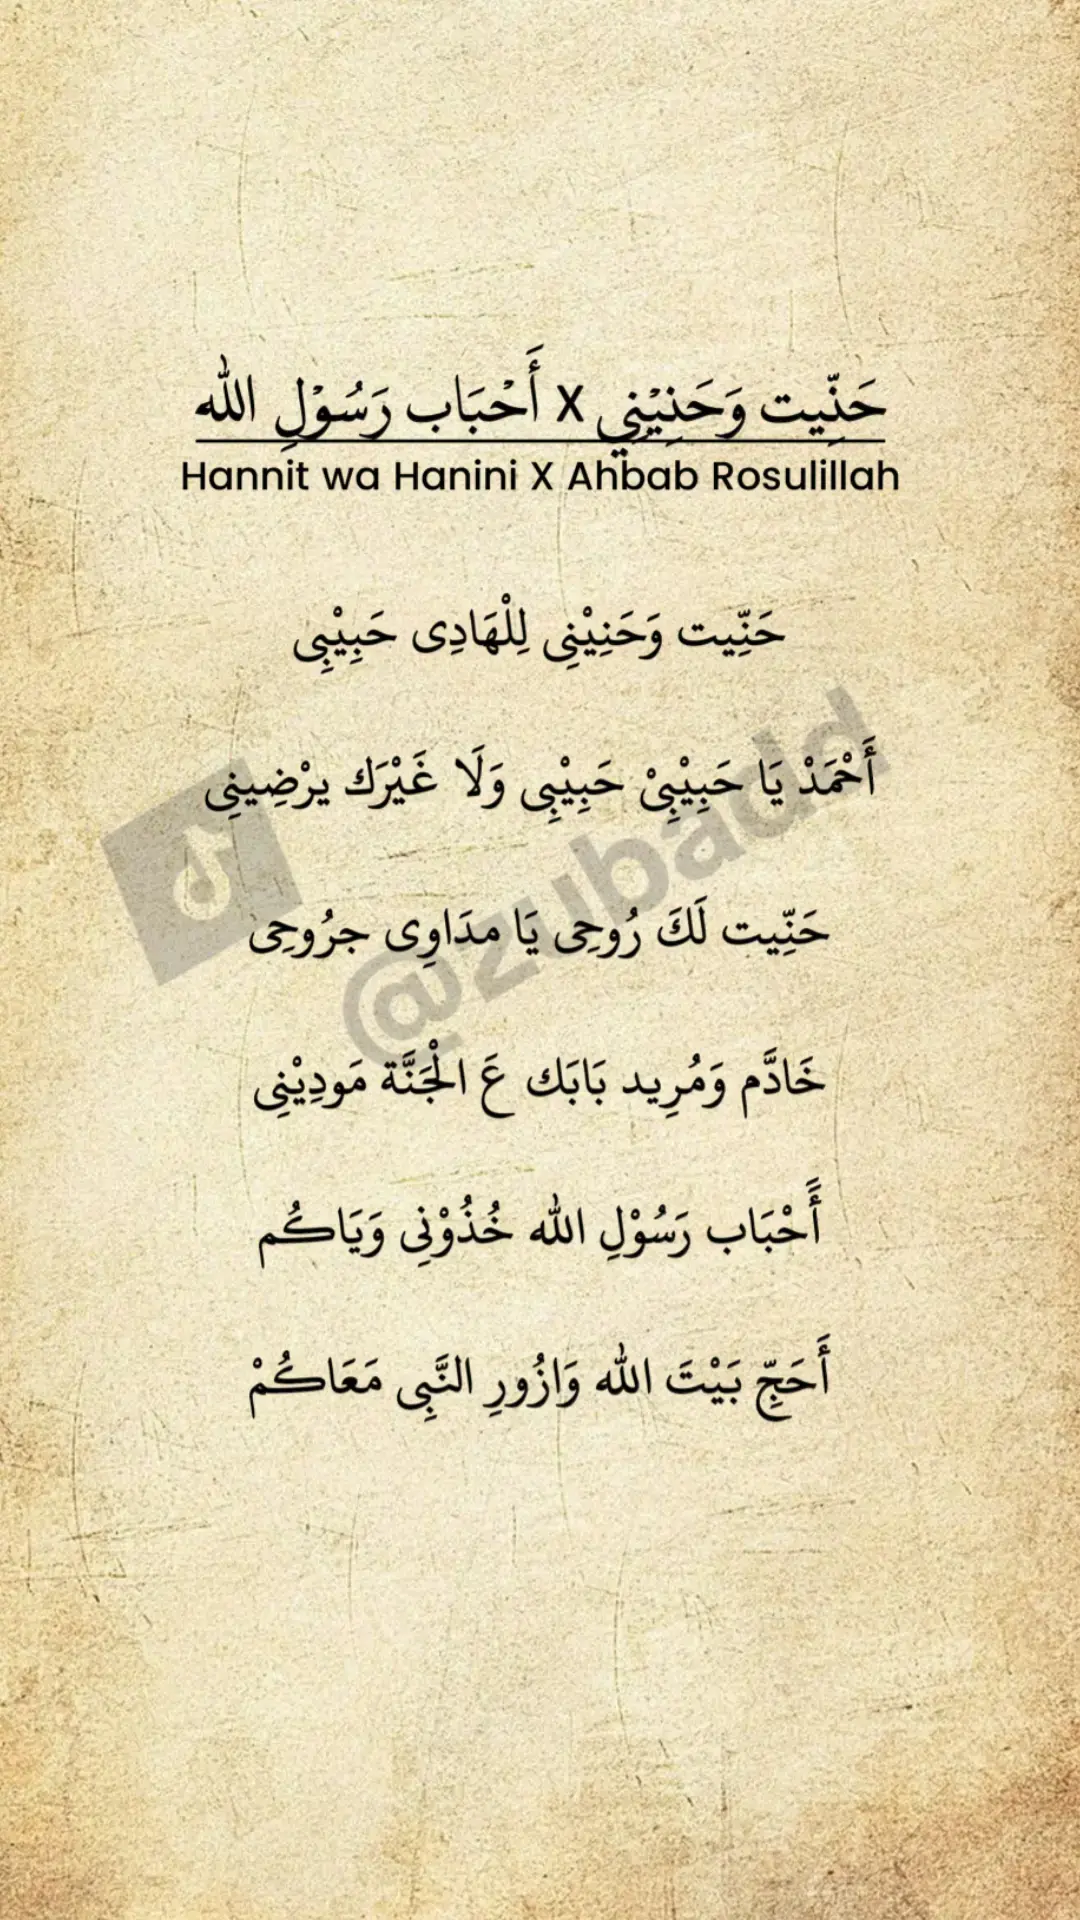 حَنِّيت وَحَنِيْنِي X أَحْبَاب رَسُوْلِ الله
Hannit wa Hanini X Ahbab Rosulillah
حَنِّيت وَحَنِيْنِى لِلْهَادِى حَبِيْبِى
أَحْمَدْ يَا حَبِيْبِىْ حَبِيْبِى وَلَا غَيْرَك يرْضِينِى
حَنِّيت لَكَ رُوحِى يَا مدَاوِى جرُوحِى
خَادَّم وَمُرِيد بَابَك عَ الْجَنَّة مَودِيْنِى
أَحْبَاب رَسُوْلِ الله خُذُوْنِى وَيَاكُم
أَحَجِّ بَيْتَ الله وَازُورِ النَّبِى مَعَاكُمْ
@zubadd